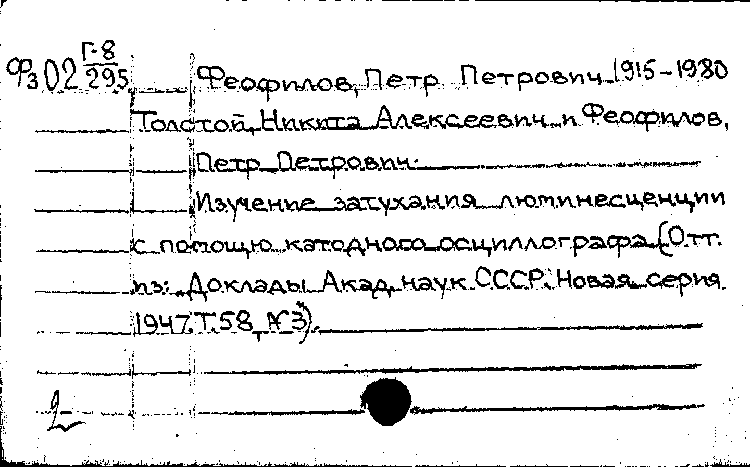 Г-8
Фз 02 295
Феофилов, Петр Петрович 1915-1980
Толстой, Никита Алексеевич и Феофилов,
Петр Петрович.
Изучение затухания люминесценции
с помощью катодного осциллографа (Отт.
из: "Доклады Акад. наук СССР. Новая серия.
1947. Т.58, №3").
2-